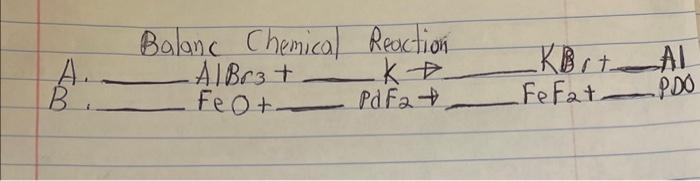 Balanc Chemical Reaction
A. ____ AlBr3 + ____ K → ____ KBr + ____ Al
B. ____ FeO + ____ PdF2 → ____ FeF2 + ____ PDO